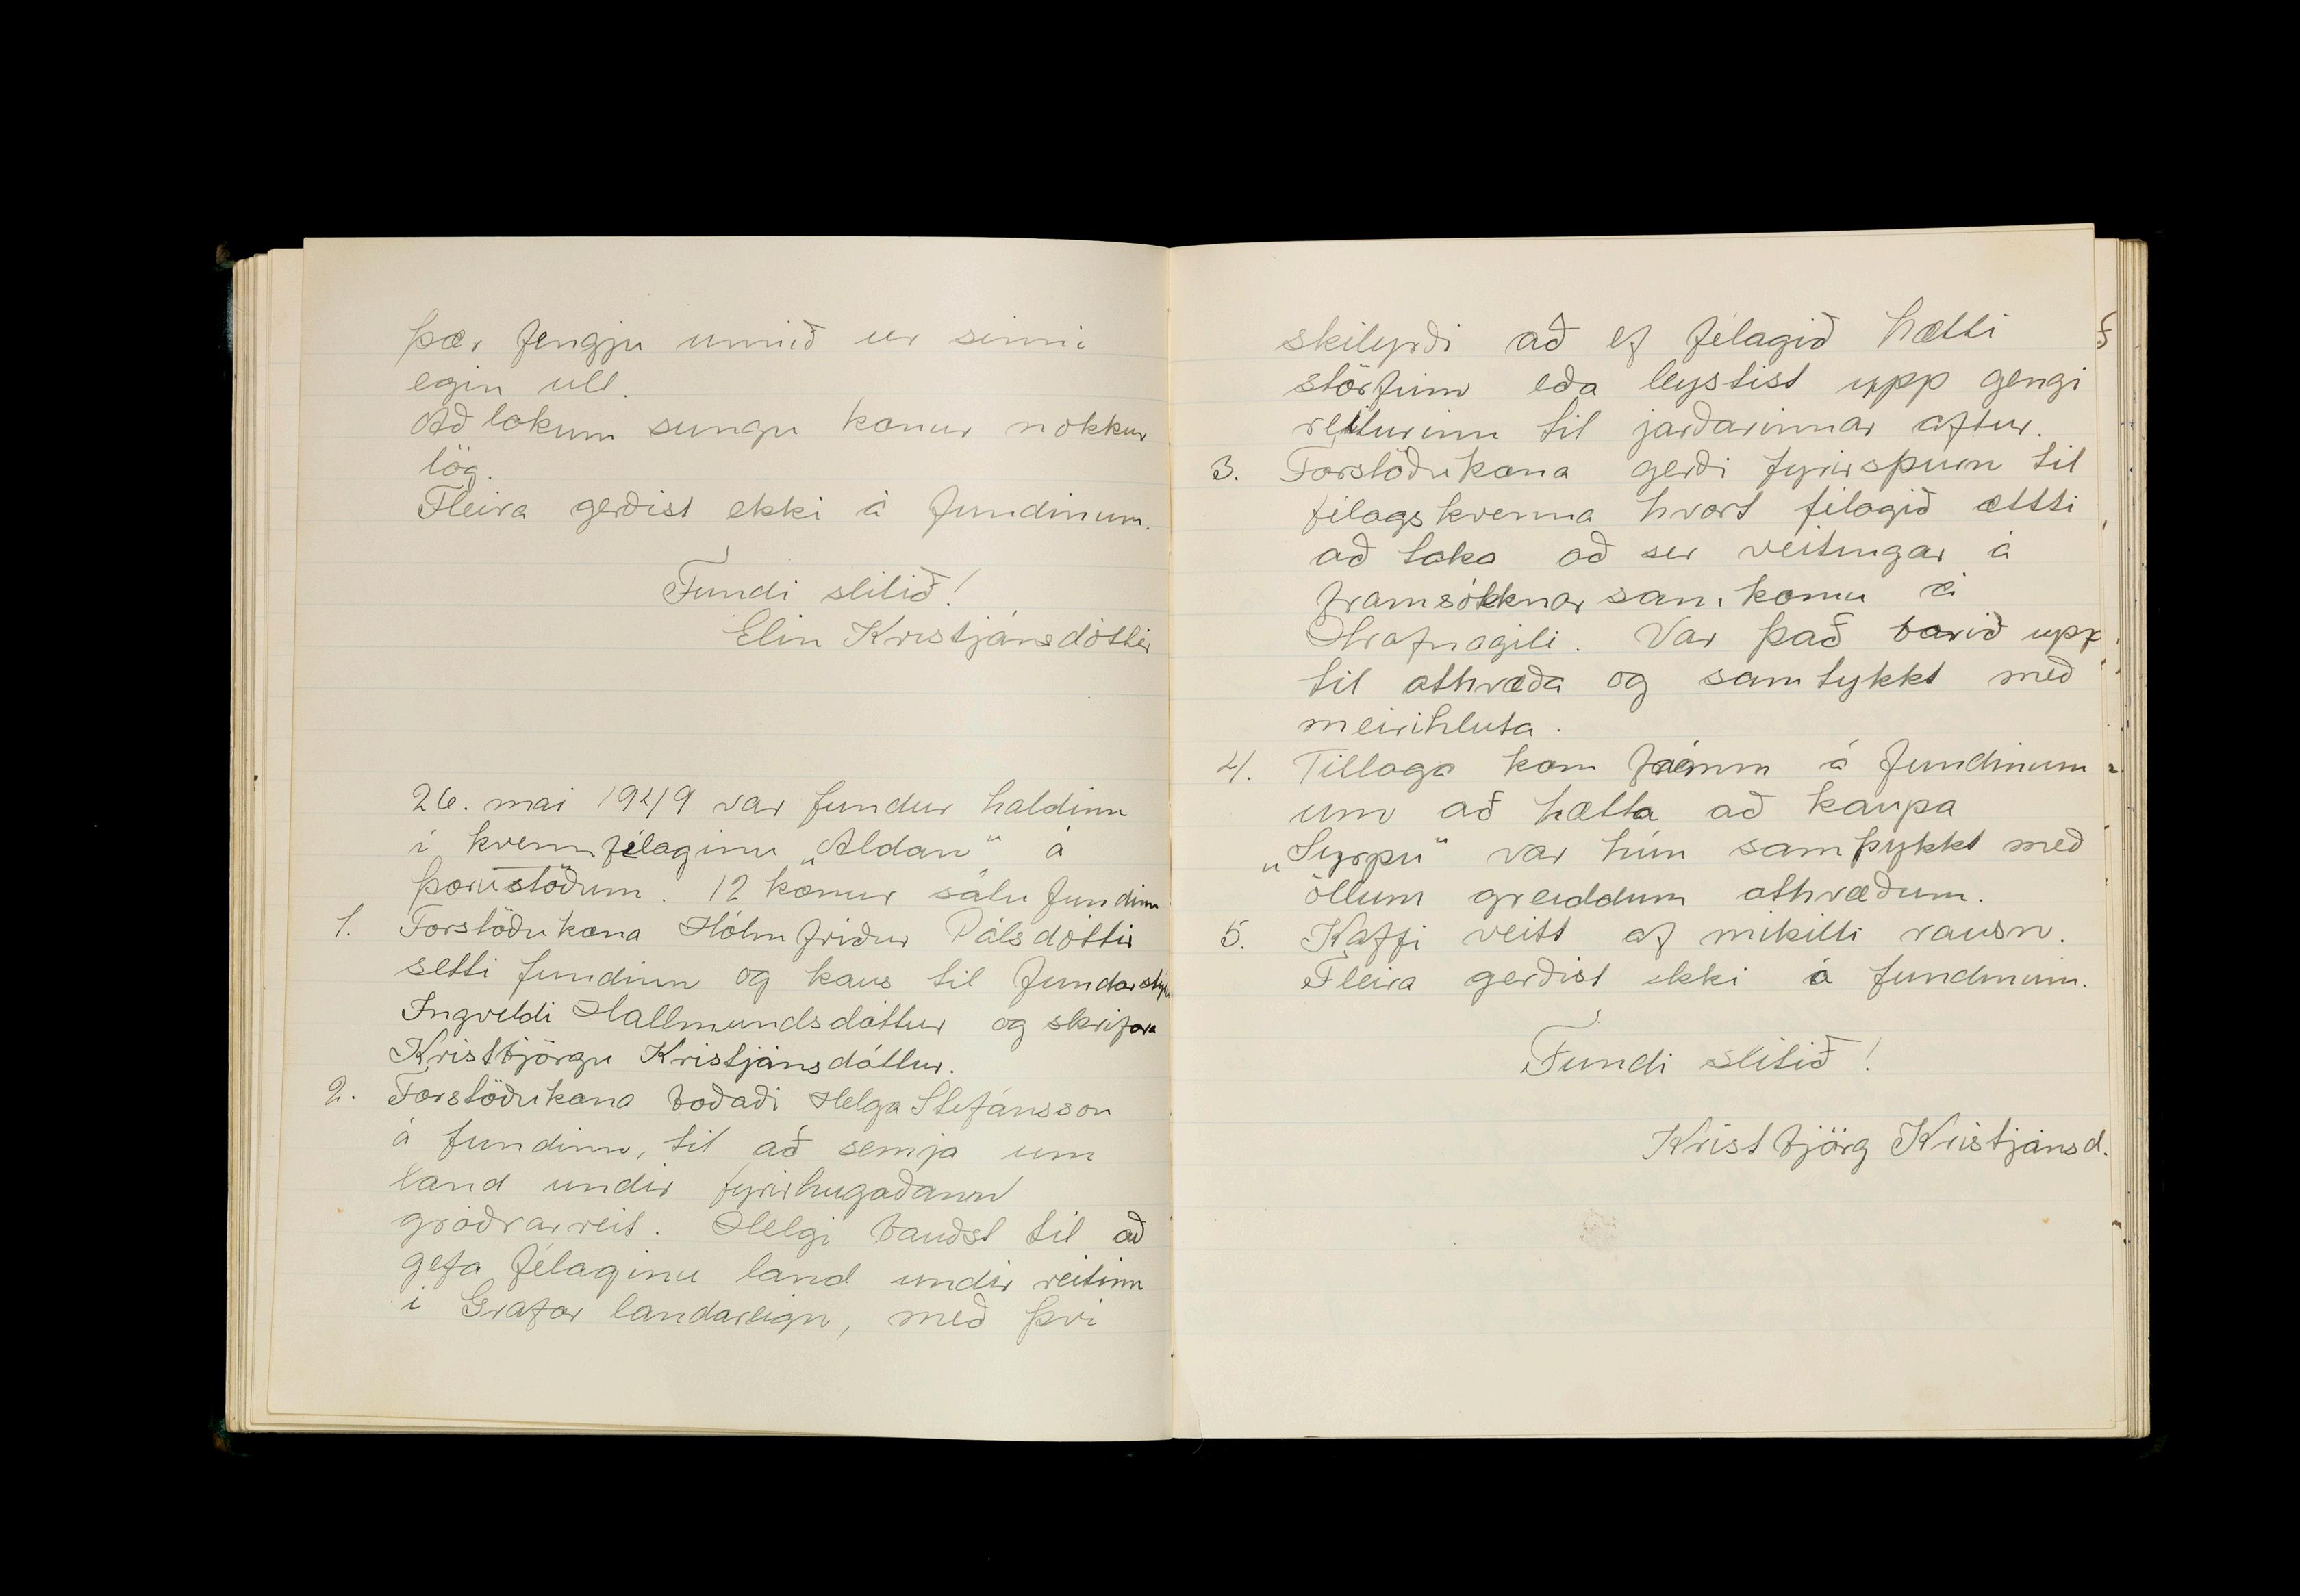 þær fengju unnið ur sinni
egin ull.
Að lokum sungu konur nokkur
lög.
Fleira gerðist ekki á fundinum.
Fundi slitið!
Elin Kristjánsdóttir
26. mai 1949 var fundur haldinn
í kvennfélaginu „Aldan" á
Þorustöðum. 12 konur sátu fundinn
1. Forstöðukona Hólmfriður Pálsdóttir
setti fundinn og kaus til
Ingveldi Hallmundsdóttur og skrifara
Kristbjörgu Kristjánsdóttur.
2. Forstöðukona boðaði Helga Stefánsson
á fundinn, til að semja um
land undir fyrirhugaðann
gróðrarreit. Helgi bauðst til að
gefa félaginu land undir reitinn
i Grafar landareign, með þvi
skilyrði að ef félagið hætti
störfum eða leystist upp gengi
reiturinn til jarðarinnar aftur.
3. Forstöðukona gerði fyrirspurn til
félagskvenna hvort félagið ættti
að taka að ser veitingar á
framsókknar samkomu á
Hrafnagili. Var það borið upp
til athvæða og samtykkt með
meirihluta.
4. Tillaga kom framm á fundinum
um að hætta að kaupa
„Syrpu" var hún samþykkt með
öllum greiddum athvæðum.
5. Kaffi veitt af mikilli rausn.
Fleira gerðist ekki á fundinum.
Fundi slitið!
Kristbjörg Kristjánsd.